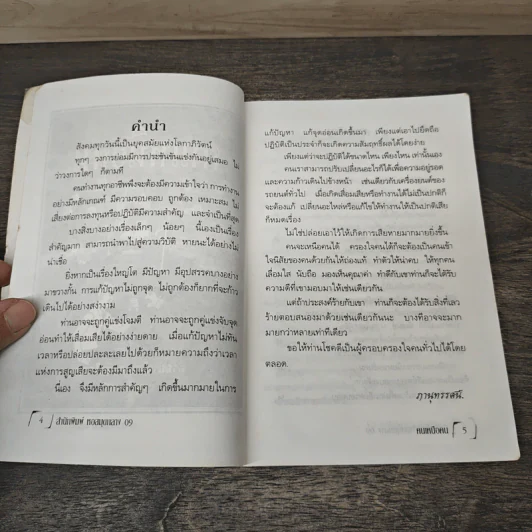 คำนำ
สังคมทุกวันนี้เป็นยุคสมัยแห่งโลกาภิวัตน์
ทุกๆ วงการย่อมมีการประชันขันแข่งกันอยู่เสมอ ไม่
ว่าวงการใดๆ ก็ตามที
คนทำงานทุกอาชีพพึงจะต้องมีความเข้าใจว่า การทำงาน
อย่างมีหลักเกณฑ์ มีความรอบคอบ ถูกต้อง เหมาะสม ไม่
เสี่ยงต่อการลงทุนหรือปฏิบัติมีความสำคัญ และจำเป็นที่สุด
บางสิ่งบางอย่างเรื่องเล็กๆ น้อยๆ นี้เองเป็นเรื่อง
สำคัญมาก สามารถนำพาไปสู่ความวิบัติ หายนะได้อย่างไม่
น่าเชื่อ
ยิ่งหากเป็นเรื่องใหญ่โต มีปัญหา มีอุปสรรคบางอย่าง
มาขวางกั้น การแก้ปัญหาไม่ถูกจุด ไม่ถูกต้องก็ยากที่จะก้าว
เดินไปได้อย่างสง่างาม
ท่านอาจจะถูกคู่แข่งโจมตี ท่านอาจจะถูกคู่แข่งจับจุด
อ่อนทำให้เสื่อมเสียได้อย่างง่ายดาย เมื่อแก้ปัญหาไม่ทัน
เวลาหรือปล่อยปละละเลยไปด้วยก็หมายความถึงว่าเวลา
แห่งการสูญเสียจะต้องมีมาถึงแล้ว
นี่เอง จึงมีหลักการสำคัญๆ เกิดขึ้นมากมายในการ
4 สำนักพิมพ์ หอสมุดกลาง 09
แก้ปัญหา แก้จุดอ่อนเกิดขึ้นมา เพียงแต่เอาไปยึดถือ
ปฏิบัติเป็นประจำก็จะเกิดความสัมฤทธิ์ผลได้โดยง่าย
เพียงแต่ว่าจะปฏิบัติได้ขนาดไหน เพียงไหน เท่านั้นเอง
คนเราสามารถปรับเปลี่ยนอะไรก็ได้เพื่อความอยู่รอด
และความก้าวเดินไปข้างหน้า เช่นเดียวกับเครื่องยนต์ของ
รถยนต์ทั่วไป เมื่อเกิดเสื่อมเสียหรือทำงานได้ไม่เป็นปกติก็
จะต้องแก้ เปลี่ยนอะไหล่หรือแก้ไขให้ทำงานให้เป็นปกติเสีย
ก็หมดเรื่อง
ไม่ใช่ปล่อยเอาไว้ให้เกิดการเสียหายมากมายยิ่งขึ้น
คนจะเหนือคนได้ ครองใจคนได้ก็จะต้องเป็นคนเข้า
ใจนิสัยของคนด้วยกันให้ถ่องแท้ ทำตัวให้น่าคบ ให้ทุกคน
เลื่อมใส นับถือ มองเห็นคุณค่า ทำดีกับเขาท่านก็จะได้รับ
ความดีที่เขามอบมาให้เช่นเดียวกัน
แต่ถ้าประสงค์ร้ายกับเขา ท่านก็จะต้องได้รับสิ่งที่เลว
ร้ายตอบสนองมาด้วยเช่นเดียวกันนะ บางทีอาจจะมาก
มายกว่าหลายเท่าทีเดียว
ขอให้ท่านโชคดีเป็นผู้ครอบครองใจคนทั่วไปได้โดย
ตลอด.
ภาณุทรรศน์.
คนเหนือคน 5